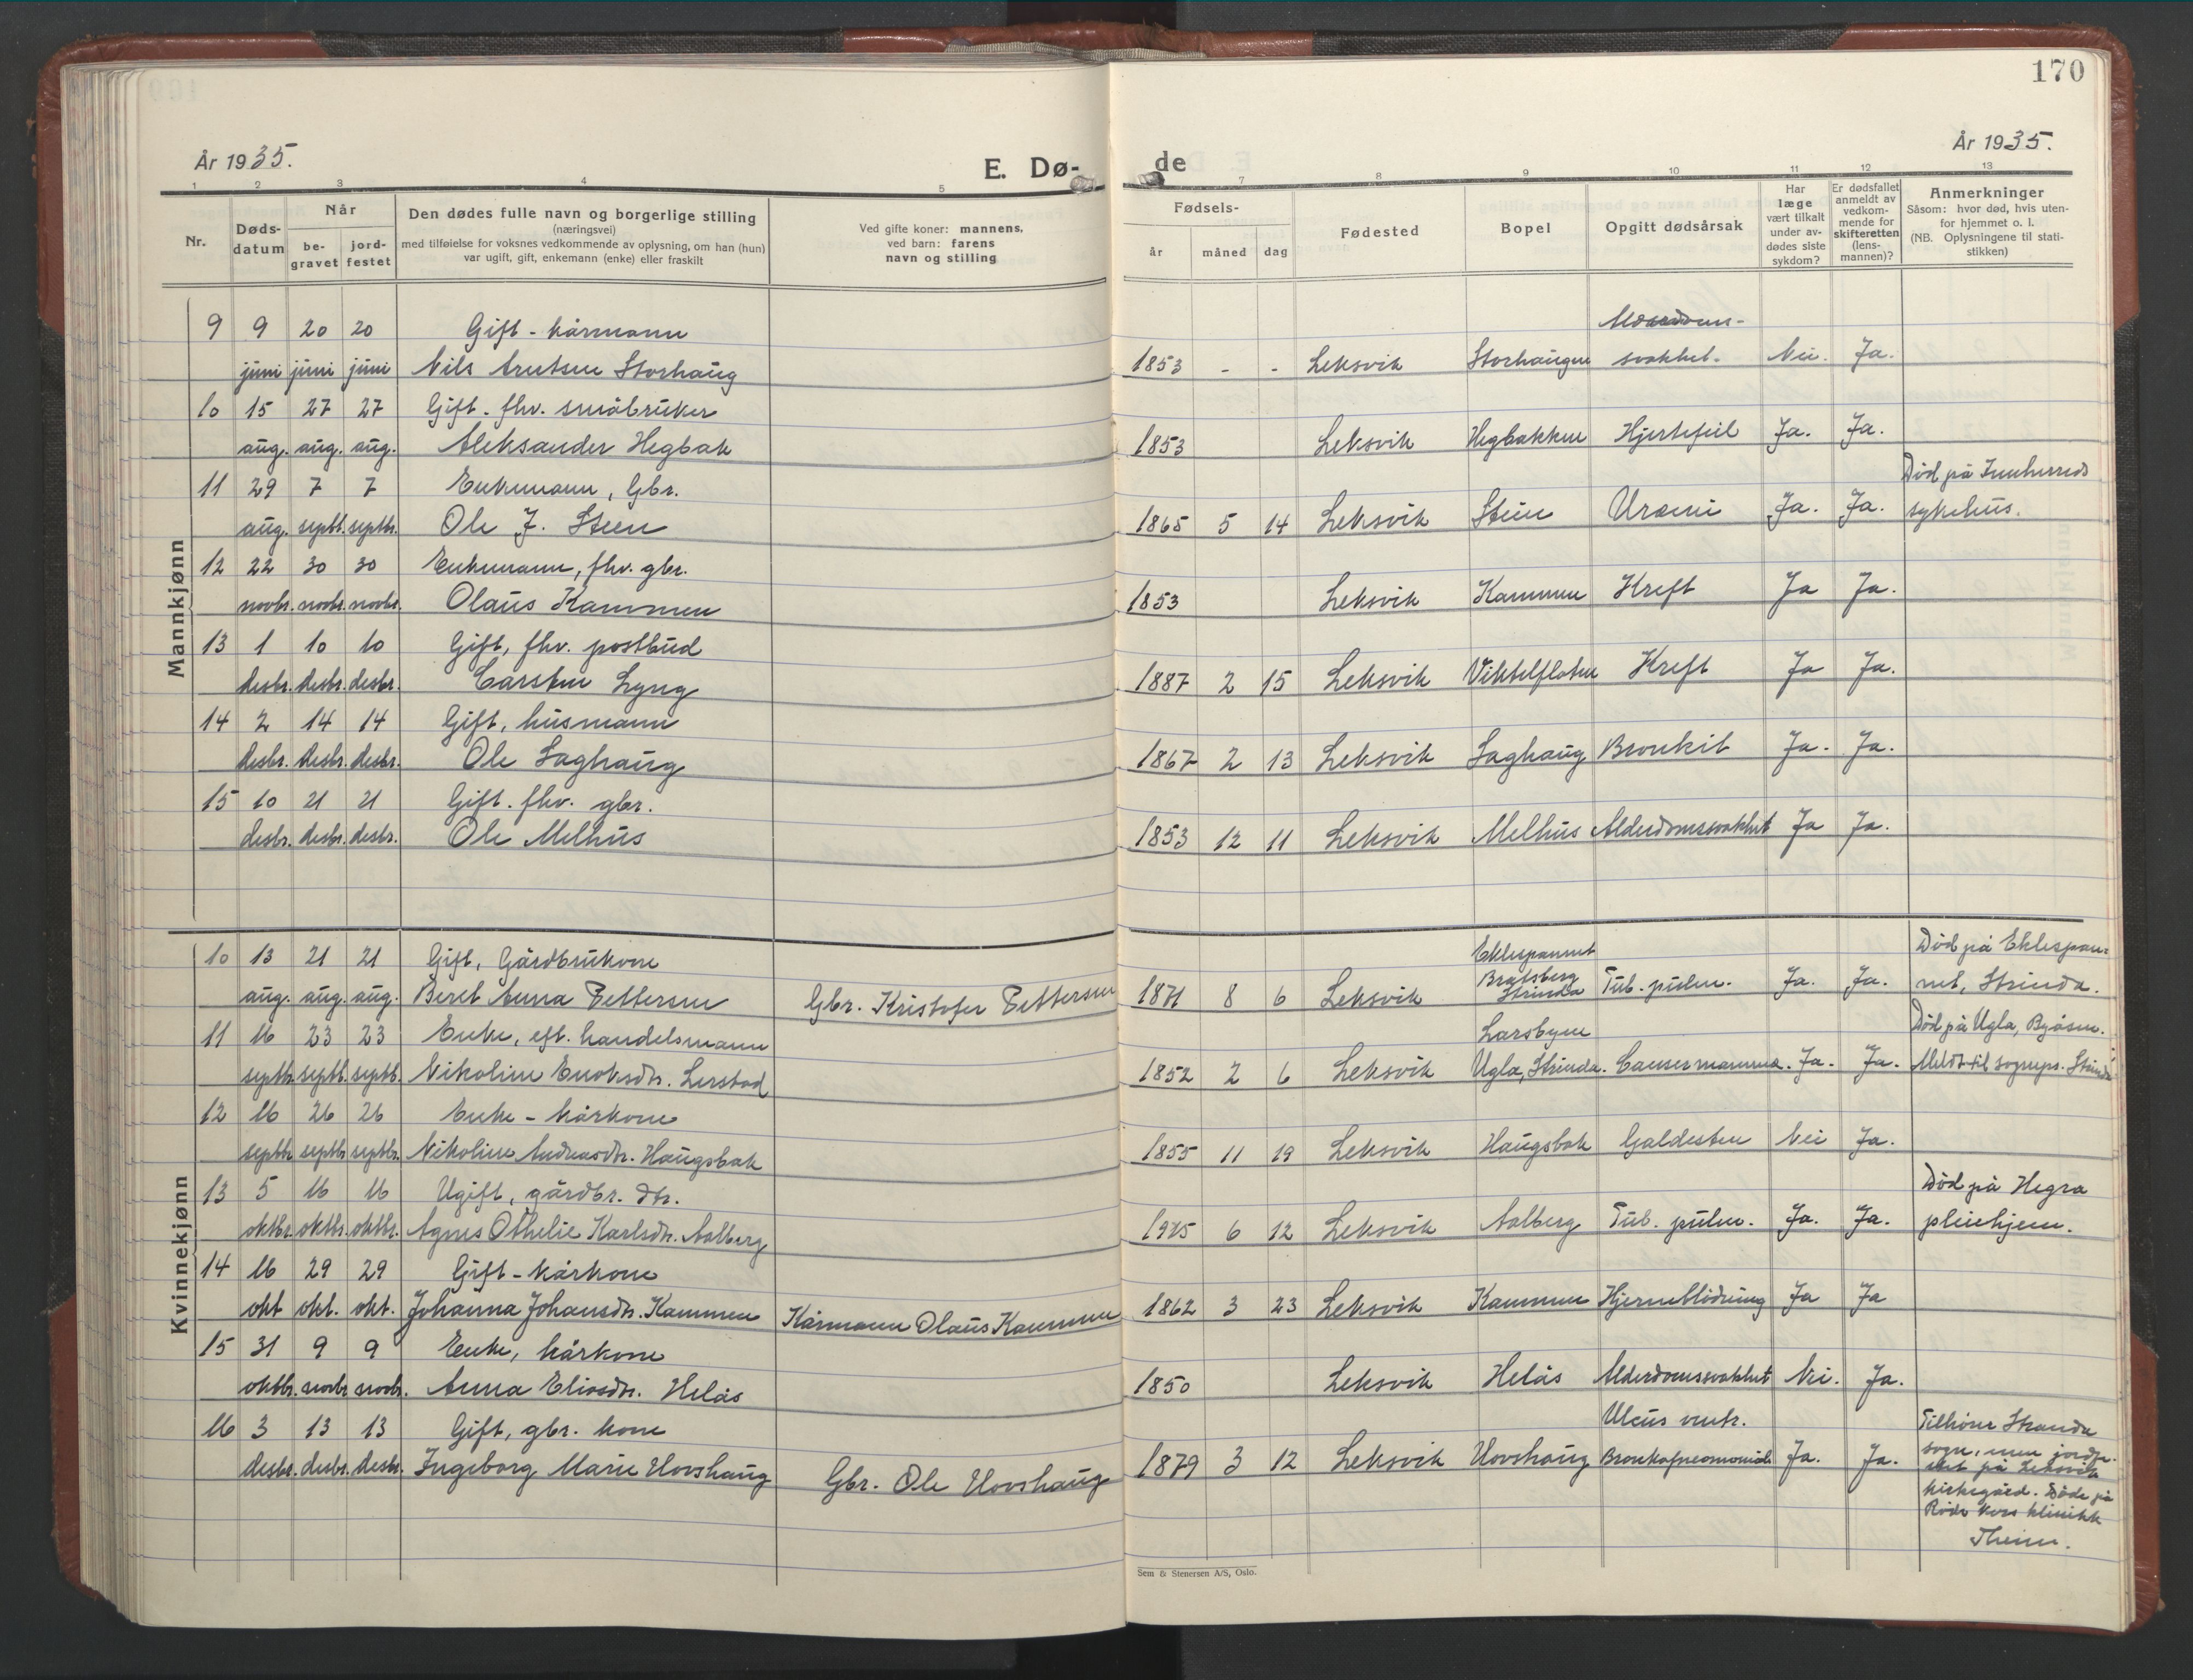 170
År 1935.
E. Dø-
de
År 1935.
1 2 3 4 5 7 8 9 10 11 12 13
Nr.
Døds-
datum
Når
be-
gravet
jord-
festet
Den dødes fulle navn og borgerlige stilling
(næringsvei)
med tilføielse for voksnes vedkommende av oplysning, om han (hun)
var ugift, gift, enkemann (enke) eller fraskilt
Ved gifte koner: mannens,
ved barn: farens
navn og stilling
Fødsels-
år måned dag
Fødested
Bopel
Opgitt dødsårsak
Har
læge
vært tilkalt
under av-
dødes siste
sykdom?
Er dødsfallet
anmeldt av
vedkom-
mende for
skifteretten
(lens-
mannen)?
Anmerkninger
Såsom: hvor død, hvis uten-
for hjemmet o. l.
(NB. Oplysningene til stati-
stikken)
Mannkjønn
9 9 20 20 Gift - kårmann Alderdoms-
juni juni juni Nils Arntsen Storhaug 1853 - - Leksvik Storhaugen svakhet. Nei. Ja.
10 15 27 27 Gift. fhv. småbruker
aug. aug. aug. Aleksander Hegbak 1853 Leksvik Hegbakken Hjertefeil Ja. Ja.
11 29 7 7 Enkemann, Gbr. Død på Innherreds
aug. septb. septbr. Ole J. Steen 1865 5 14 Leksvik Stein Uræmi Ja. Ja. sykehus.
12 22 30 30 Enkemann, fhv. gbr.
novbr. novbr. novbr. Olaus Kammen 1853 Leksvik Kammen Kreft Ja Ja.
13 1 10 10 Gift, fhv. postbud
desbr. desbr. desbr. Carsten Lyng 1887 2 15 Leksvik Viktelfloten Kreft Ja Ja.
14 2 14 14 Gift, husmann
desbr. desbr. desbr. Ole Saghaug 1867 2 13 Leksvik Saghaug Bronkit Ja. Ja.
15 10 21 21 Gift. fhv. gbr.
desbr. desbr. desbr. Ole Melhus 1853 12 11 Leksvik Melhus Alderdomssvakhet Ja Ja.
Kvinnekjønn
10 13 21 21 Gift, Gårdbrukone Eklespannet Død på Eklespan-
aug. aug. aug. Beret Anna Pettersen Gbr. Kristofer Pettersen 1871 8 6 Leksvik Bratsberg Strinda Tub. pulm. Ja. Ja. net, Strinda.
11 16 23 23 Enke, eft. handelsmann Larsbyen Død på Ugla, Byåsen.
septb. septb. septb. Nikoline Enoksdtr. Lerstad 1852 2 6 Leksvik Ugla, Strinda. Cancer mamma. Ja. Ja. Meldt til sognepr. Strinda
12 16 26 26 Enke - kårkone
septbr septbr septbr. Nikoline Andreasdtr. Haugsbak 1855 11 19 Leksvik Haugsbak Galdesten Nei Ja.
13 5 16 16 Ugift, gårdbr. dtr. Død på Hegra
oktbr. oktbr. oktbr. Agnes Othelie Karlsdtr. Aalberg 1915 6 12 Leksvik Aalberg Tub. pulm. Ja. Ja. pleiehjem.
14 16 29 29 Gift - kårkone
okt okt. okt. Johanna Johansdtr. Kammen Kårmann Olaus Kammen 1862 3 23 Leksvik Kammen Hjerneblødning Ja Ja
15 31 9 9 Enke, kårkone
oktbr. novbr novbr. Anna Eliasdtr. Helås 1850 Leksvik Helås Alderdomssvakhet Nei. Ja.
16 3 13 13 Gift, gbr. kone Ulcus ventr. Tilhører Stranda
desbr. desbr. desbr. Ingeborg Marie Hovshaug Gbr. Ole Hovshaug 1879 3 12 Leksvik Hovshaug Bronkopneomonial Ja. Ja. sogn, men jordfe-
stet på Leksvik
kirkegård. Døde på
Røde Kors klinikk
Theim.
Sem & Stenersen A/S, Oslo.